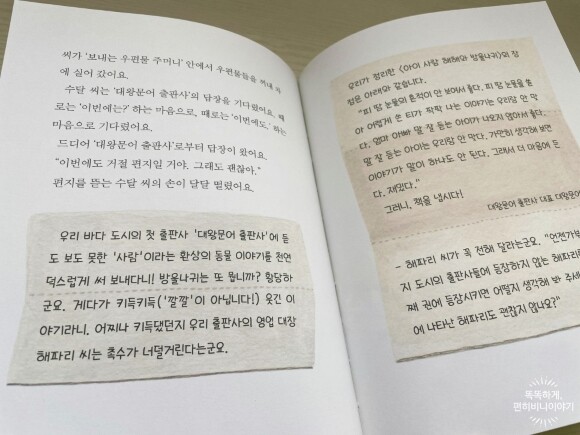 씨가 '보내는 우편물 주머니' 안에서 우편물들을 꺼내
에 실어 갔어요.
수달 씨는 '대왕문어 출판사'의 답장을 기다렸어요. 때
로는 '이번에는?' 하는 마음으로, 때로는 '이번에도.' 하는
마음으로 기다렸어요.
드디어 '대왕문어 출판사'로부터 답장이 왔어요.
"이번에도 거절 편지일 거야. 그래도 괜찮아."
편지를 뜯는 수달 씨의 손이 달달 떨렸어요.
우리 바다 도시의 첫 출판사 '대왕문어 출판사'에 듣
도 보도 못한 '사람'이라는 환상의 동물 이야기를 천연
덕스럽게 써 보내다니! 방울나귀는 또 뭡니까? 황당하
군요. 게다가 키득키득('깔깔'이 아닙니다!) 웃긴 이
야기라니. 어찌나 키득댔던지 우리 출판사의 영업 대장
해파리 씨는 촉수가 너덜거린다는군요.
우리가 정리한 〈아이 사람 해해와 방울나귀〉의 장
점은 아래와 같습니다.
"피 땀 눈물의 흔적이 안 보여서 좋다. 피 땀 눈물을 쏟
아 어렵게 쓴 티가 팍팍 나는 이야기는 우리랑 안 맞
다. 엄마 아빠 말 잘 듣는 아이가 나오지 않아서 좋다.
말 잘 듣는 아이는 우리랑 안 맞다. 가만히 생각해 보면
이야기가 말이 하나도 안 된다. 그래서 더 마음에 든
다. 재밌다."
그러니, 책을 냅시다!
대왕문어 출판사 대표 대왕문어
- 해파리 씨가 꼭 전해 달라는군요. "언젠가부
지 도시의 출판사들에 등장하지 않는 해파리
째 권에 등장시키면 어떨지 생각해 봐 주세
에 나타난 해파리도 괜찮지 않나요?"
똑똑하게,
면히비니이야기